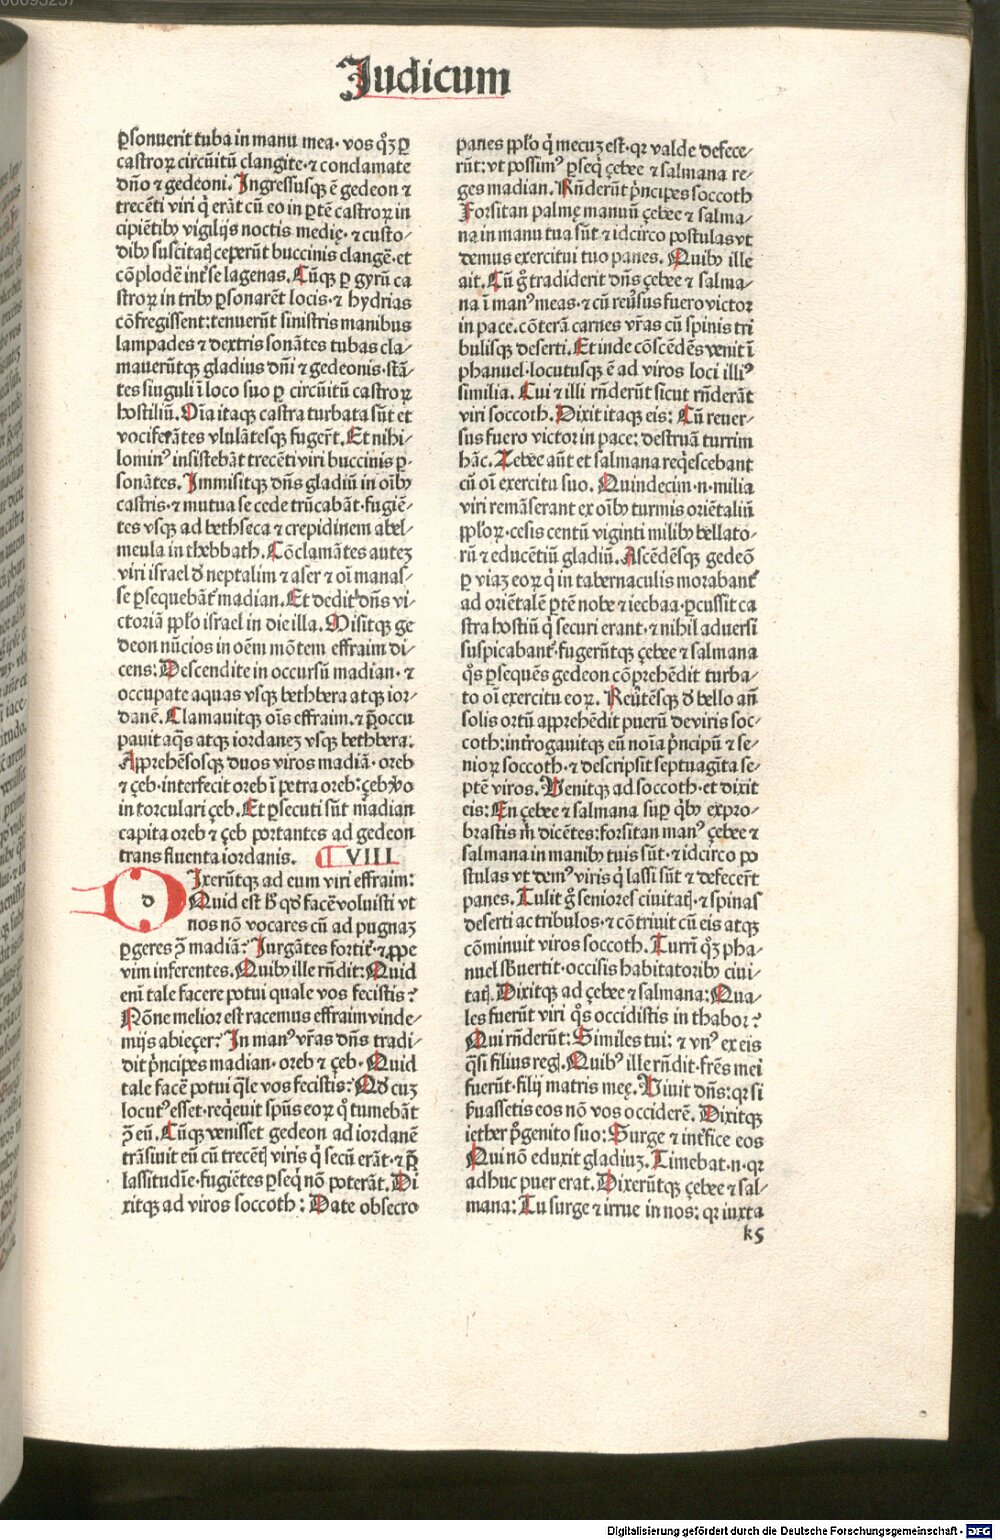 Judicum
ꝑsonuerit tuba in manu mea· vos qꝫ ꝑ
castroꝝ circũitũ clangite·⁊ conclamate
dño ⁊ gedeoni. Ingressusqꝫ ẽ gedeon ⁊
trecẽti viri q̇ erãt cũ eo in ꝑtẽ castroꝝ in
cipiẽtibꝫ vigilijs noctis medię·⁊ custo⸗
dibꝫ suscitatꝭ ceperũt buccinis clangẽ·et
cõplodẽ int̾ se lagenas. Cũqꝫ ꝑ gyrũ ca
stroꝝ in tribꝫ ꝑsonarẽt locis·⁊ hydrias
cõfregissent: tenuerũt sinistris manibus
lampades ⁊ dextris sonãtes tubas cla⸗
mauerũtqꝫ gladius dñi ⁊ gedeonis·stã⸗
tes singuli ĩ loco suo ꝑ circũitũ castroꝝ
hostiliũ. Oĩa itaqꝫ castra turbata sũt et
vociferãtes vlulãtesqꝫ fugerũt. Et nihi⸗
lominꝰ insistebãt trecẽti viri buccinis ꝑ⸗
sonãtes. Immisitqꝫ dñs gladiũ in oĩbꝫ
castris·⁊ mutua se cede trũcabãt·fugiẽ⸗
tes vsqꝫ ad bethseca ⁊ crepidinem abel⸗
meula in thebbath. Cõclamãtes autez
viri israel ð neptalim ⁊ aser ⁊ oĩ manas⸗
se ꝑsequebãt᷑ madian. Et dedit dñs vi⸗
ctoriã pp̃lo israel in die illa. Misitqꝫ ge
deon nũcios in oẽm mõtem effraim di⸗
cens: Descendite in occursũ madian·⁊
occupate aquas vsqꝫ bethbera atqꝫ ior⸗
danẽ. Clamauitqꝫ oĩs effraim·⁊ p̃occu
pauit aq̃s atqꝫ iordanez vsqꝫ bethbera.
Apprehẽsosqꝫ duos viros madiã· oreb
⁊ çeb·interfecit oreb ĩ petra oreb: çeb v̊o
in torculari çeb. Et ꝑsecuti sũt madian
capita oreb ⁊ çeb portantes ad gedeon
trans fluenta iordanis. VIII
d
Ixerũtqꝫ ad eum viri effraim:
Quid est h̾ qð facẽ voluisti vt
nos nõ vocares cũ ad pugnaz
ꝑgeres ↄ̃ madiã? Iurgãtes fortit̾·⁊ ꝓpe
vim inferentes. Quibꝫ ille rñdit: Quid
enĩ tale facere potui quale vos fecistis?
Nõne melior est racemus effraim vinde⸗
mijs abieçer? In manꝰ vr̃as dñs tradi⸗
dit p̃ncipes madian· oreb ⁊ çeb· Quid
tale facẽ potui q̃le vos fecistis? Qð cuz
locutꝰ esset·req̇euit spũs eoꝝ q̊ tumebãt
ↄ̃ eũ. Cũqꝫ venisset gedeon ad iordanẽ
trãsiuit eũ cũ trecẽtꝭ viris q̇ secũ erãt·⁊ p̃
lassitudĩe·fugiẽtes ꝑseq̇ nõ poterãt. Di
xitqꝫ ad viros soccoth: Date obsecro
panes pp̃lo q̇ mecuz est·qꝛ valde defece⸗
rũt: vt possimꝰ ꝑseq̇ çebee ⁊ salmana re⸗
ges madian. Rñderũt p̃ncipes soccoth
Forsitan palmę manuũ çebee ⁊ salma⸗
na in manu tua sũt ⁊ idcirco postulas vt
demus exercitui tuo panes. Quibꝫ ille
ait. Cũ g̊ tradiderit dñs çebee ⁊ salma⸗
na ĩ manꝰ meas·⁊ cũ reũsus fuero victor
in pace·cõterã carnes vr̃as cũ spinis tri
bulisqꝫ deserti. Et inde cõscẽdẽs venit ĩ
phanuel·locutusqꝫ ẽ ad viros loci illiꝰ
similia. Cui ⁊ illi rñderũt sicut rñderãt
viri soccoth. Dixit itaqꝫ eis: Cũ reuer⸗
sus fuero victor in pace: destruã turrim
hãc. Zebee aũt et salmana req̇escebant
cũ oĩ exercitu suo. Quindecim·n·milia
viri remãserant ex oĩbꝫ turmis oriẽtaliũ
pp̃loꝝ·cesis centũ viginti milibꝫ bellato⸗
rũ ⁊ educẽtiũ gladiũ. Ascẽdẽsqꝫ gedeõ
ꝑ viaz eoꝝ q̇ in tabernaculis morabant᷑
ad oriẽtalẽ ꝑtẽ nobe ⁊ iecbaa·ꝑcussit ca
stra hostiũ q̇ securi erant·⁊ nihil aduersi
suspicabant᷑·fugerũtqꝫ çebee ⁊ salmana
q̊s ꝑsequẽs gedeon cõprehẽdit turba⸗
to oĩ exercitu eoꝝ. Reũtẽsqꝫ ð bello añ
solis ortũ apprehẽdit puerũ de viris soc⸗
coth: int̾rogauitqꝫ eũ noĩa p̃ncipũ ⁊ se⸗
nioꝝ soccoth·⁊ descripsit septuagĩta se⸗
ptẽ viros. Venitqꝫ ad soccoth·et dixit
eis: En çebee ⁊ salmana suꝑ q̇bꝫ expro⸗
brastis m̃ dicẽtes: forsitan manꝰ çebee ⁊
salmana in manibꝫ tuis sũt·⁊ idcirco po
stulas vt demꝰ viris q̇ lassi sũt ⁊ defecerũt
panes. Tulit g̊ seniores ciuitatꝭ·⁊ spinas
deserti ac tribulos·⁊ cõtriuit cũ eis atqꝫ
cõminuit viros soccoth. Turrĩ qꝫ pha⸗
nuel sb̾uertit·occisis habitatoribꝫ ciui⸗
tatꝭ. Dixitqꝫ ad çebee ⁊ salmana: Qua⸗
les fuerũt viri q̊s occidistis in thabor?
Qui rñderũt: Similes tui: ⁊ vnꝰ ex eis
q̃si filius regꝭ. Quibꝰ ille rñdit·fr̃es mei
fuerũt·filij matris meę. Viuit dñs: qꝛ si
ẞuassetis eos nõ vos occiderẽ. Dixitqꝫ
iether p̊genito suo: Surge ⁊ int̾fice eos
Qui nõ eduxit gladiuz. Timebat·n·qꝛ
adhuc puer erat. Dixerũtqꝫ çebee ⁊ sal⸗
mana: Tu surge ⁊ irrue in nos: qꝛ iuxta
k5
Digitalisierung gefördert durch die Deutsche Forschungsgemeinschaft - DFG